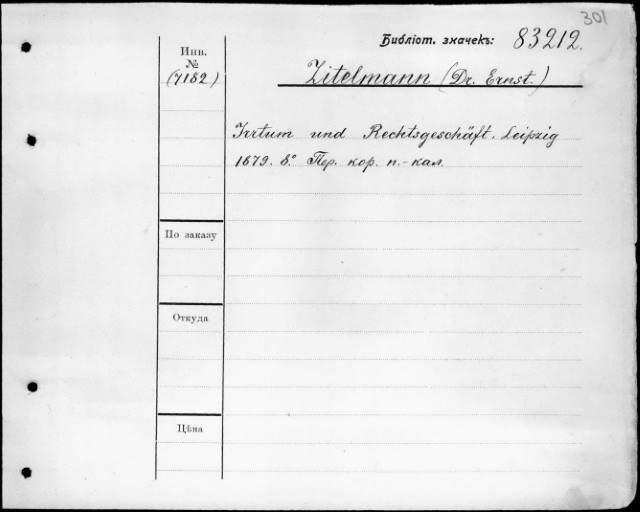 301
Библіот. значекъ: 83212.
Инв.
№
(7182)
Zitelmann (Dr. Ernst.)
Irrtum und Rechtsgeschäft. Leipzig
1879. 8.° Пер. кор. п.-кал.
По заказу
Откуда
Цѣна